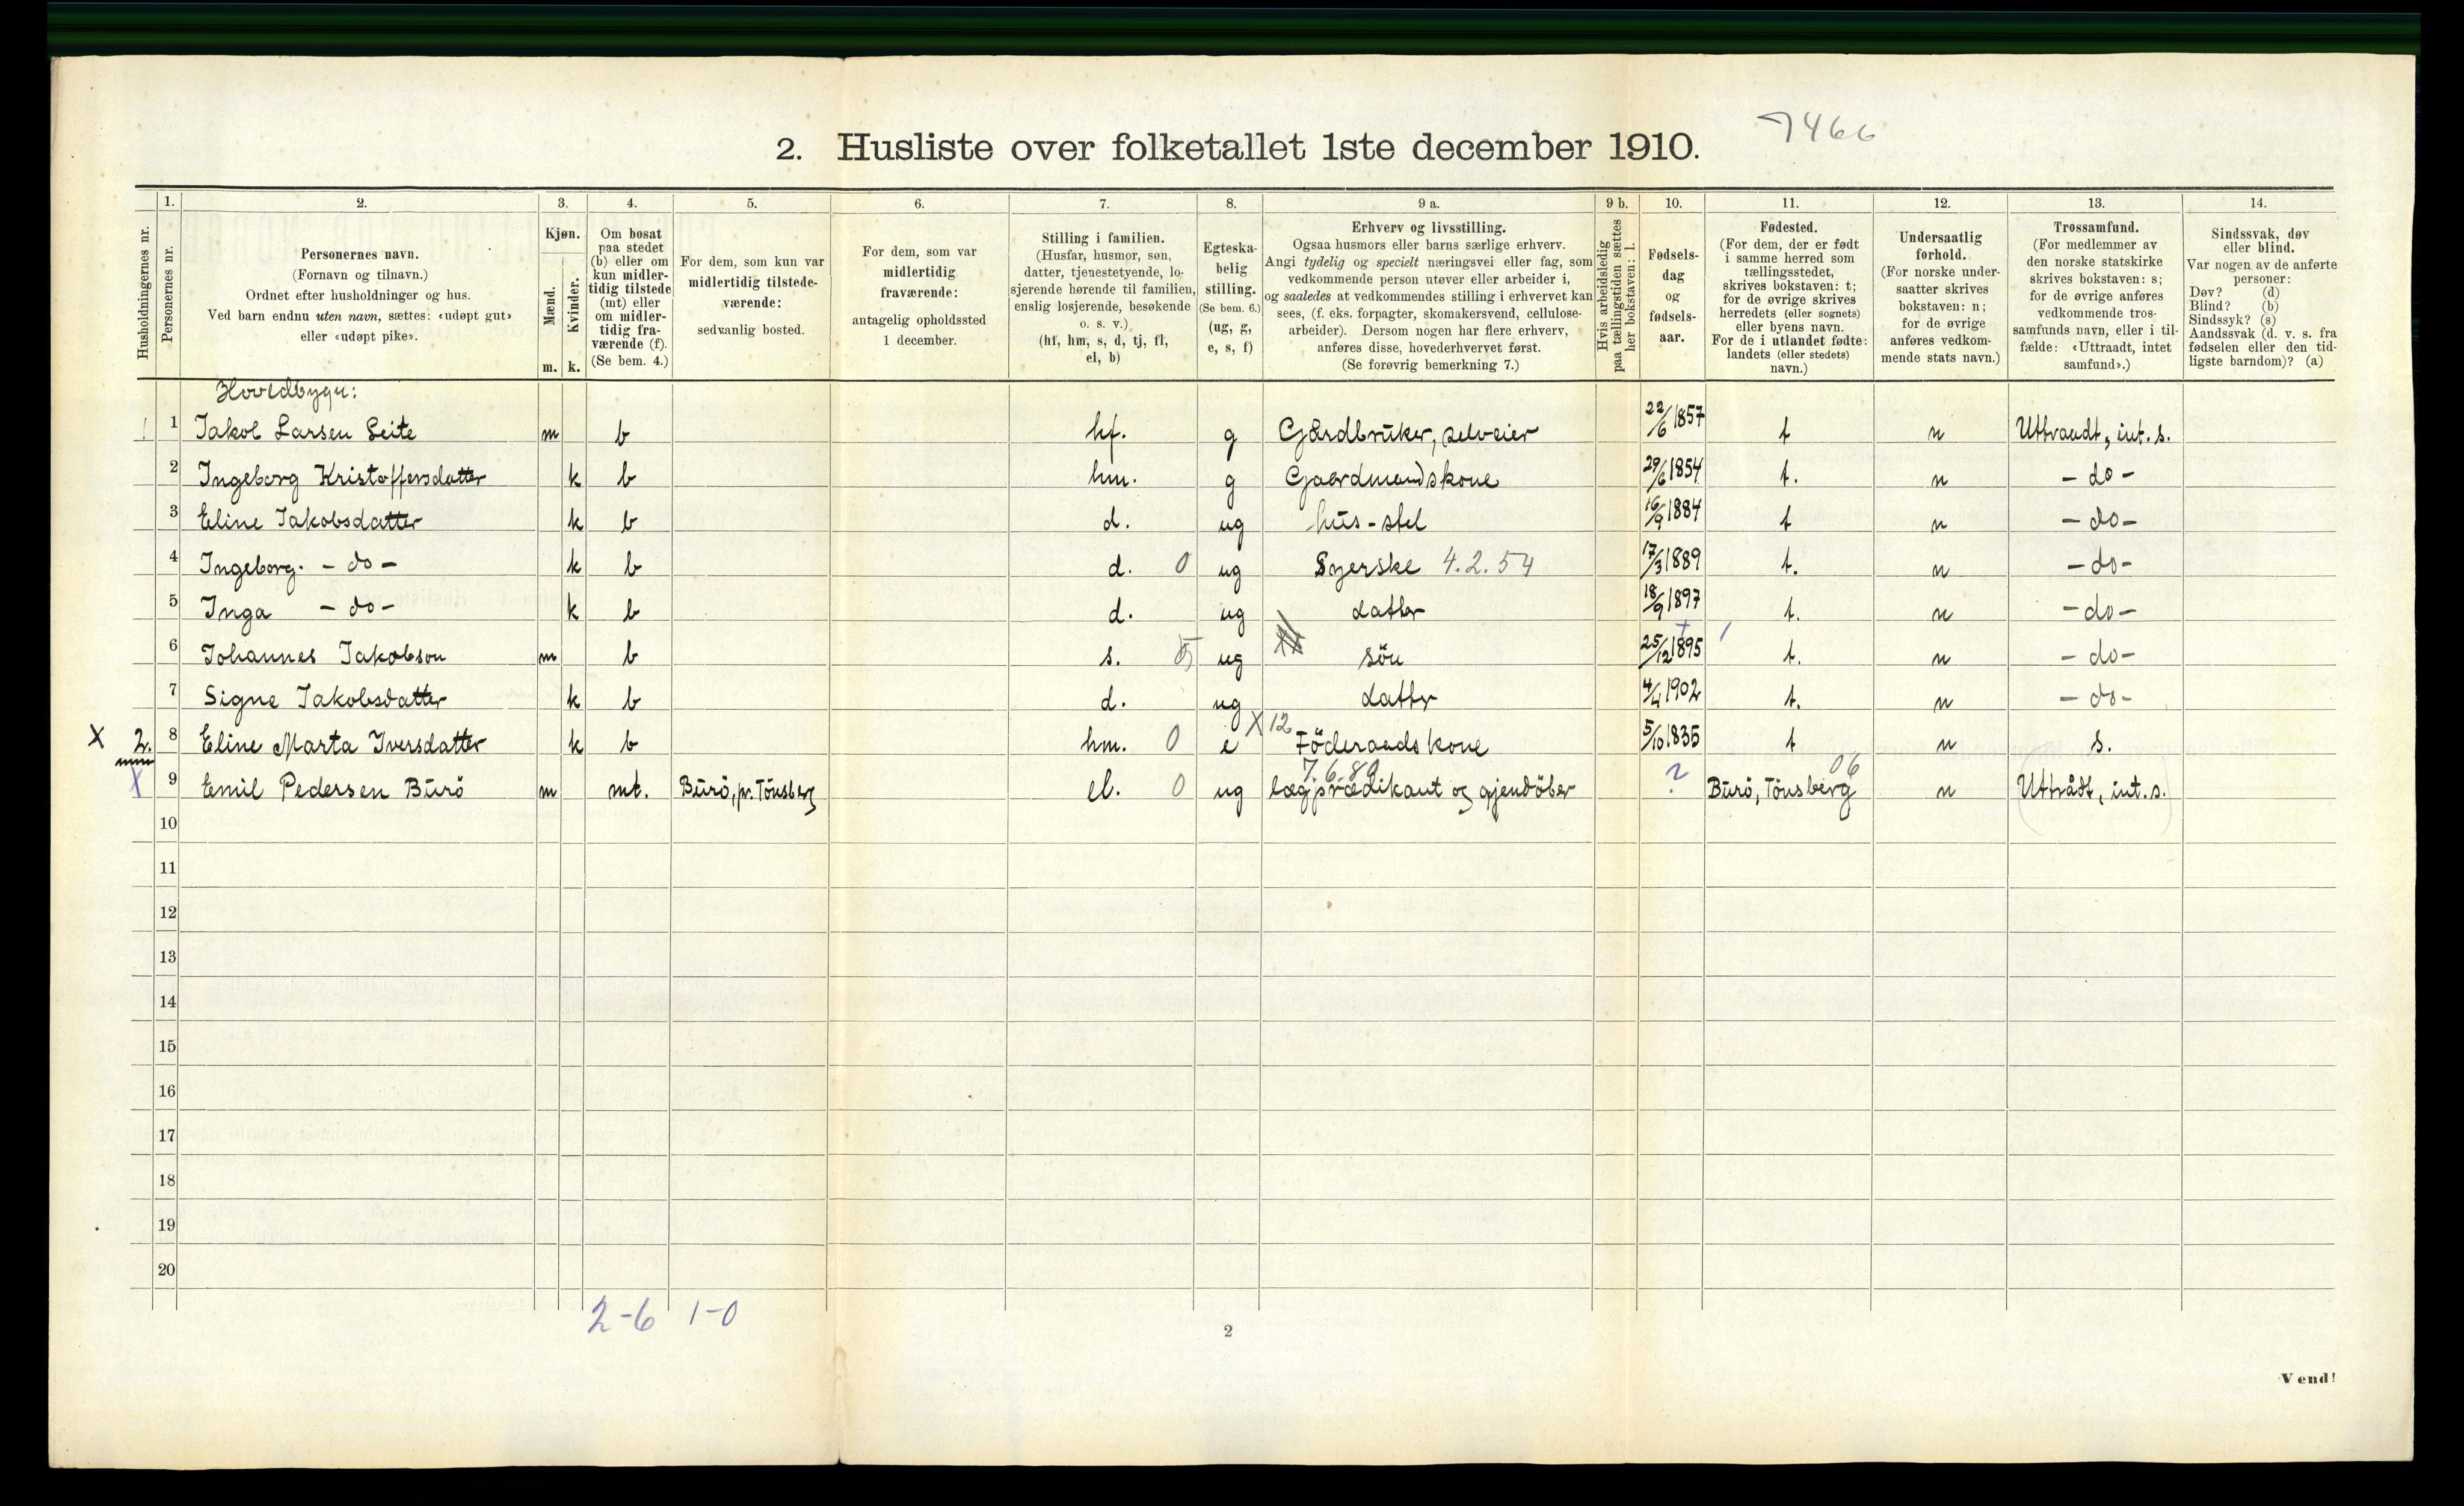 7466
2. Husliste over folketallet 1ste december 1910.
1. 2. 3. 4. 5. 6. 7. 8. 9 a. 9 b. 10. 11. 12. 13. 14.
Husholdningernes nr.
Personernes nr.
Personernes navn.
(Fornavn og tilnavn.)
Ordnet efter husholdninger og hus.
Ved barn endnu uten navn, sættes: «udøpt gut»
eller «udøpt pike».
Kjøn.
Mænd.
Kvinder.
m. k.
Om bosat
paa stedet
(b) eller om
kun midler-
tidig tilstede
(mt) eller
om midler-
tidig fra-
værende (f).
(Se bem. 4.)
For dem, som kun var
midlertidig tilstede-
værende:
sedvanlig bosted.
For dem, som var
midlertidig
fraværende:
antagelig opholdssted
1 december.
Stilling i familien.
(Husfar, husmor, søn,
datter, tjenestetyende, lo-
sjerende hørende til familien,
enslig losjerende, besøkende
o. s. v.)
(hf, hm, s, d, tj, fl,
el, b)
Egteska-
belig
stilling.
(Se bem. 6.)
(ug, g,
e, s, f)
Erhverv og livsstilling.
Ogsaa husmors eller barns særlige erhverv.
Angi tydelig og specielt næringsvei eller fag, som
vedkommende person utøver eller arbeider i,
og saaledes at vedkommendes stilling i erhvervet kan
sees, (f. eks. forpagter, skomakersvend, cellulose-
arbeider). Dersom nogen har flere erhverv,
anføres disse, hovederhvervet først.
(Se forøvrig bemerkning 7.)
Hvis arbeidsledig
paa tællingstiden sættes
her bokstaven: l.
Fødsels-
dag
og
fødsels-
aar.
Fødested.
(For dem, der er født
i samme herred som
tællingsstedet,
skrives bokstaven: t;
for de øvrige skrives
herredets (eller sognets)
eller byens navn.
For de i utlandet fødte:
landets (eller stedets)
navn.)
Undersaatlig
forhold.
(For norske under-
saatter skrives
bokstaven: n;
for de øvrige
anføres vedkom-
mende stats navn.)
Trossamfund.
(For medlemmer av
den norske statskirke
skrives bokstaven: s;
for de øvrige anføres
vedkommende tros-
samfunds navn, eller i til-
fælde: «Uttraadt, intet
samfund».)
Sindssvak, døv
eller blind.
Var nogen av de anførte
personer:
Døv? (d)
Blind? (b)
Sindssyk? (s)
Aandssvak (d. v. s. fra
fødselen eller den tid-
ligste barndom)? (a)
1 1 Jakob Larsen Leite m b hf. g Gårdbruker, selveier 22/6 1857 t n Uttraadt, int. s.
2 Ingeborg Kristoffersdatter k b hm. g Gaardmandskone 29/6 1854 t. n - do -
3 Eline Jakobsdatter k b d. ug hus-stel 16/9 1884 t n - do -
4 Ingeborg. - do - k b d. 0 ug Syerske 4.2.54 17/3 1889 t. n - do -
5 Inga - do - k b d. ug datter 18/9 1897 t. n - do -
6 Johannes Jakobson m b s. ug søn 25/12 1895 t. n - do -
7 Signe Jakobsdatter k b d. ug datter 4/4 1902 t. n - do -
X 2. 8 Eline Marta Iversdatter k b hm. 0 e X 12 Föderaadskone 5/10 1835 t n s.
7.6.80 06
X 9 Emil Pedersen Burö m mt. Burö, pr. Tönsberg el. 0 ug lægprædikant og gjendöber ? Burö, Tönsberg n Uttrådt, int. s.
10
11
12
13
14
15
16
17
18
19
20
2-6 1-0
2
Vend!